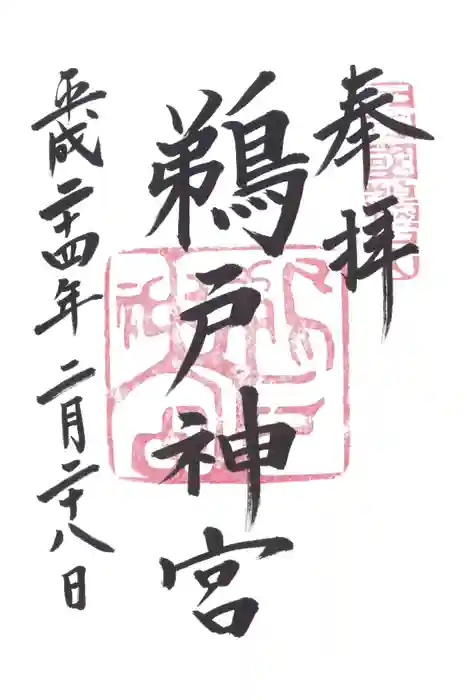 奉拝
鵜戸神宮
平成二十四年二月二十八日